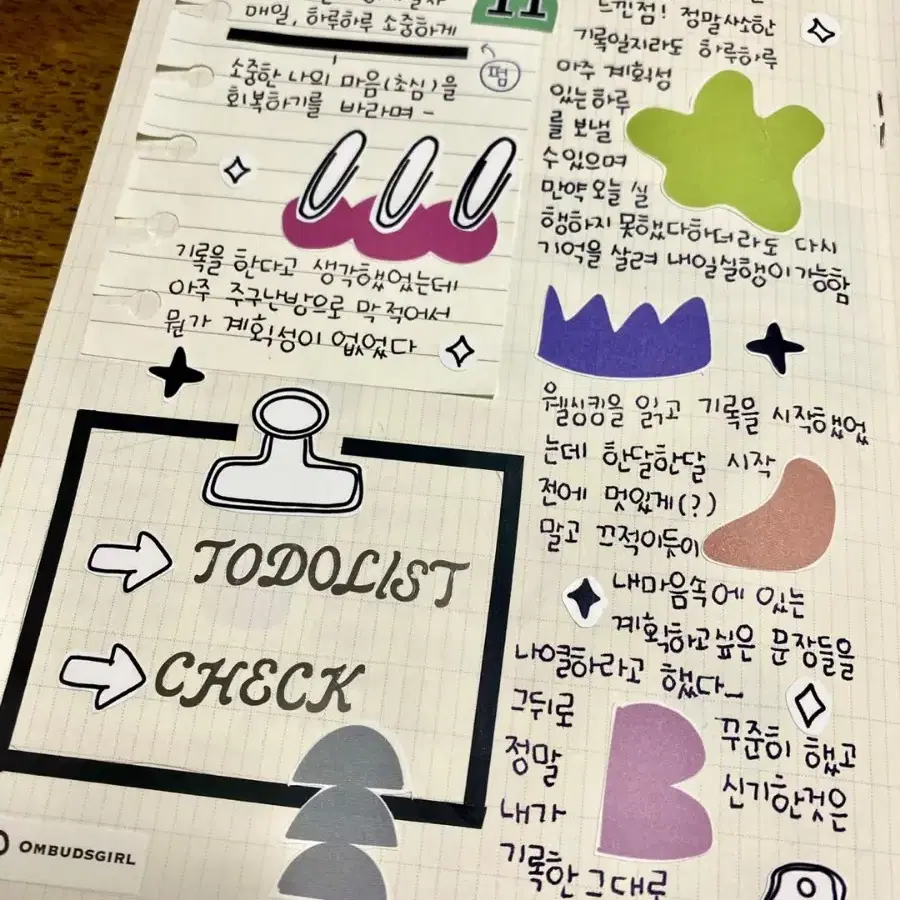 매일, 하루하루 소중하게
펌
소중한 나의 마음(초심)을
회복하기를 바라며 -
기록을 한다고 생각했었는데
아주 주구난방으로 막 적어서
뭔가 계획성이 없었다
TODOLIST
CHECK
OMBUDSGIRL
11
느낀점! 정말 사소한
기록일지라도 하루하루
아주 계획성
있는하루
를 보낼
수있으며
만약 오늘 실
행하지 못했다하더라도 다시
기억을 살려 내일실행이가능함
웰씽킹을 읽고 기록을 시작했었
는데 한달한달 시작
전에 멋있게(?)
말고 끄적이듯이
내마음속에 있는
계획하고싶은 문장들을
나열하라고 했다_
그뒤로
정말
내가
기록한 그대로
꾸준히 했고
신기한것은